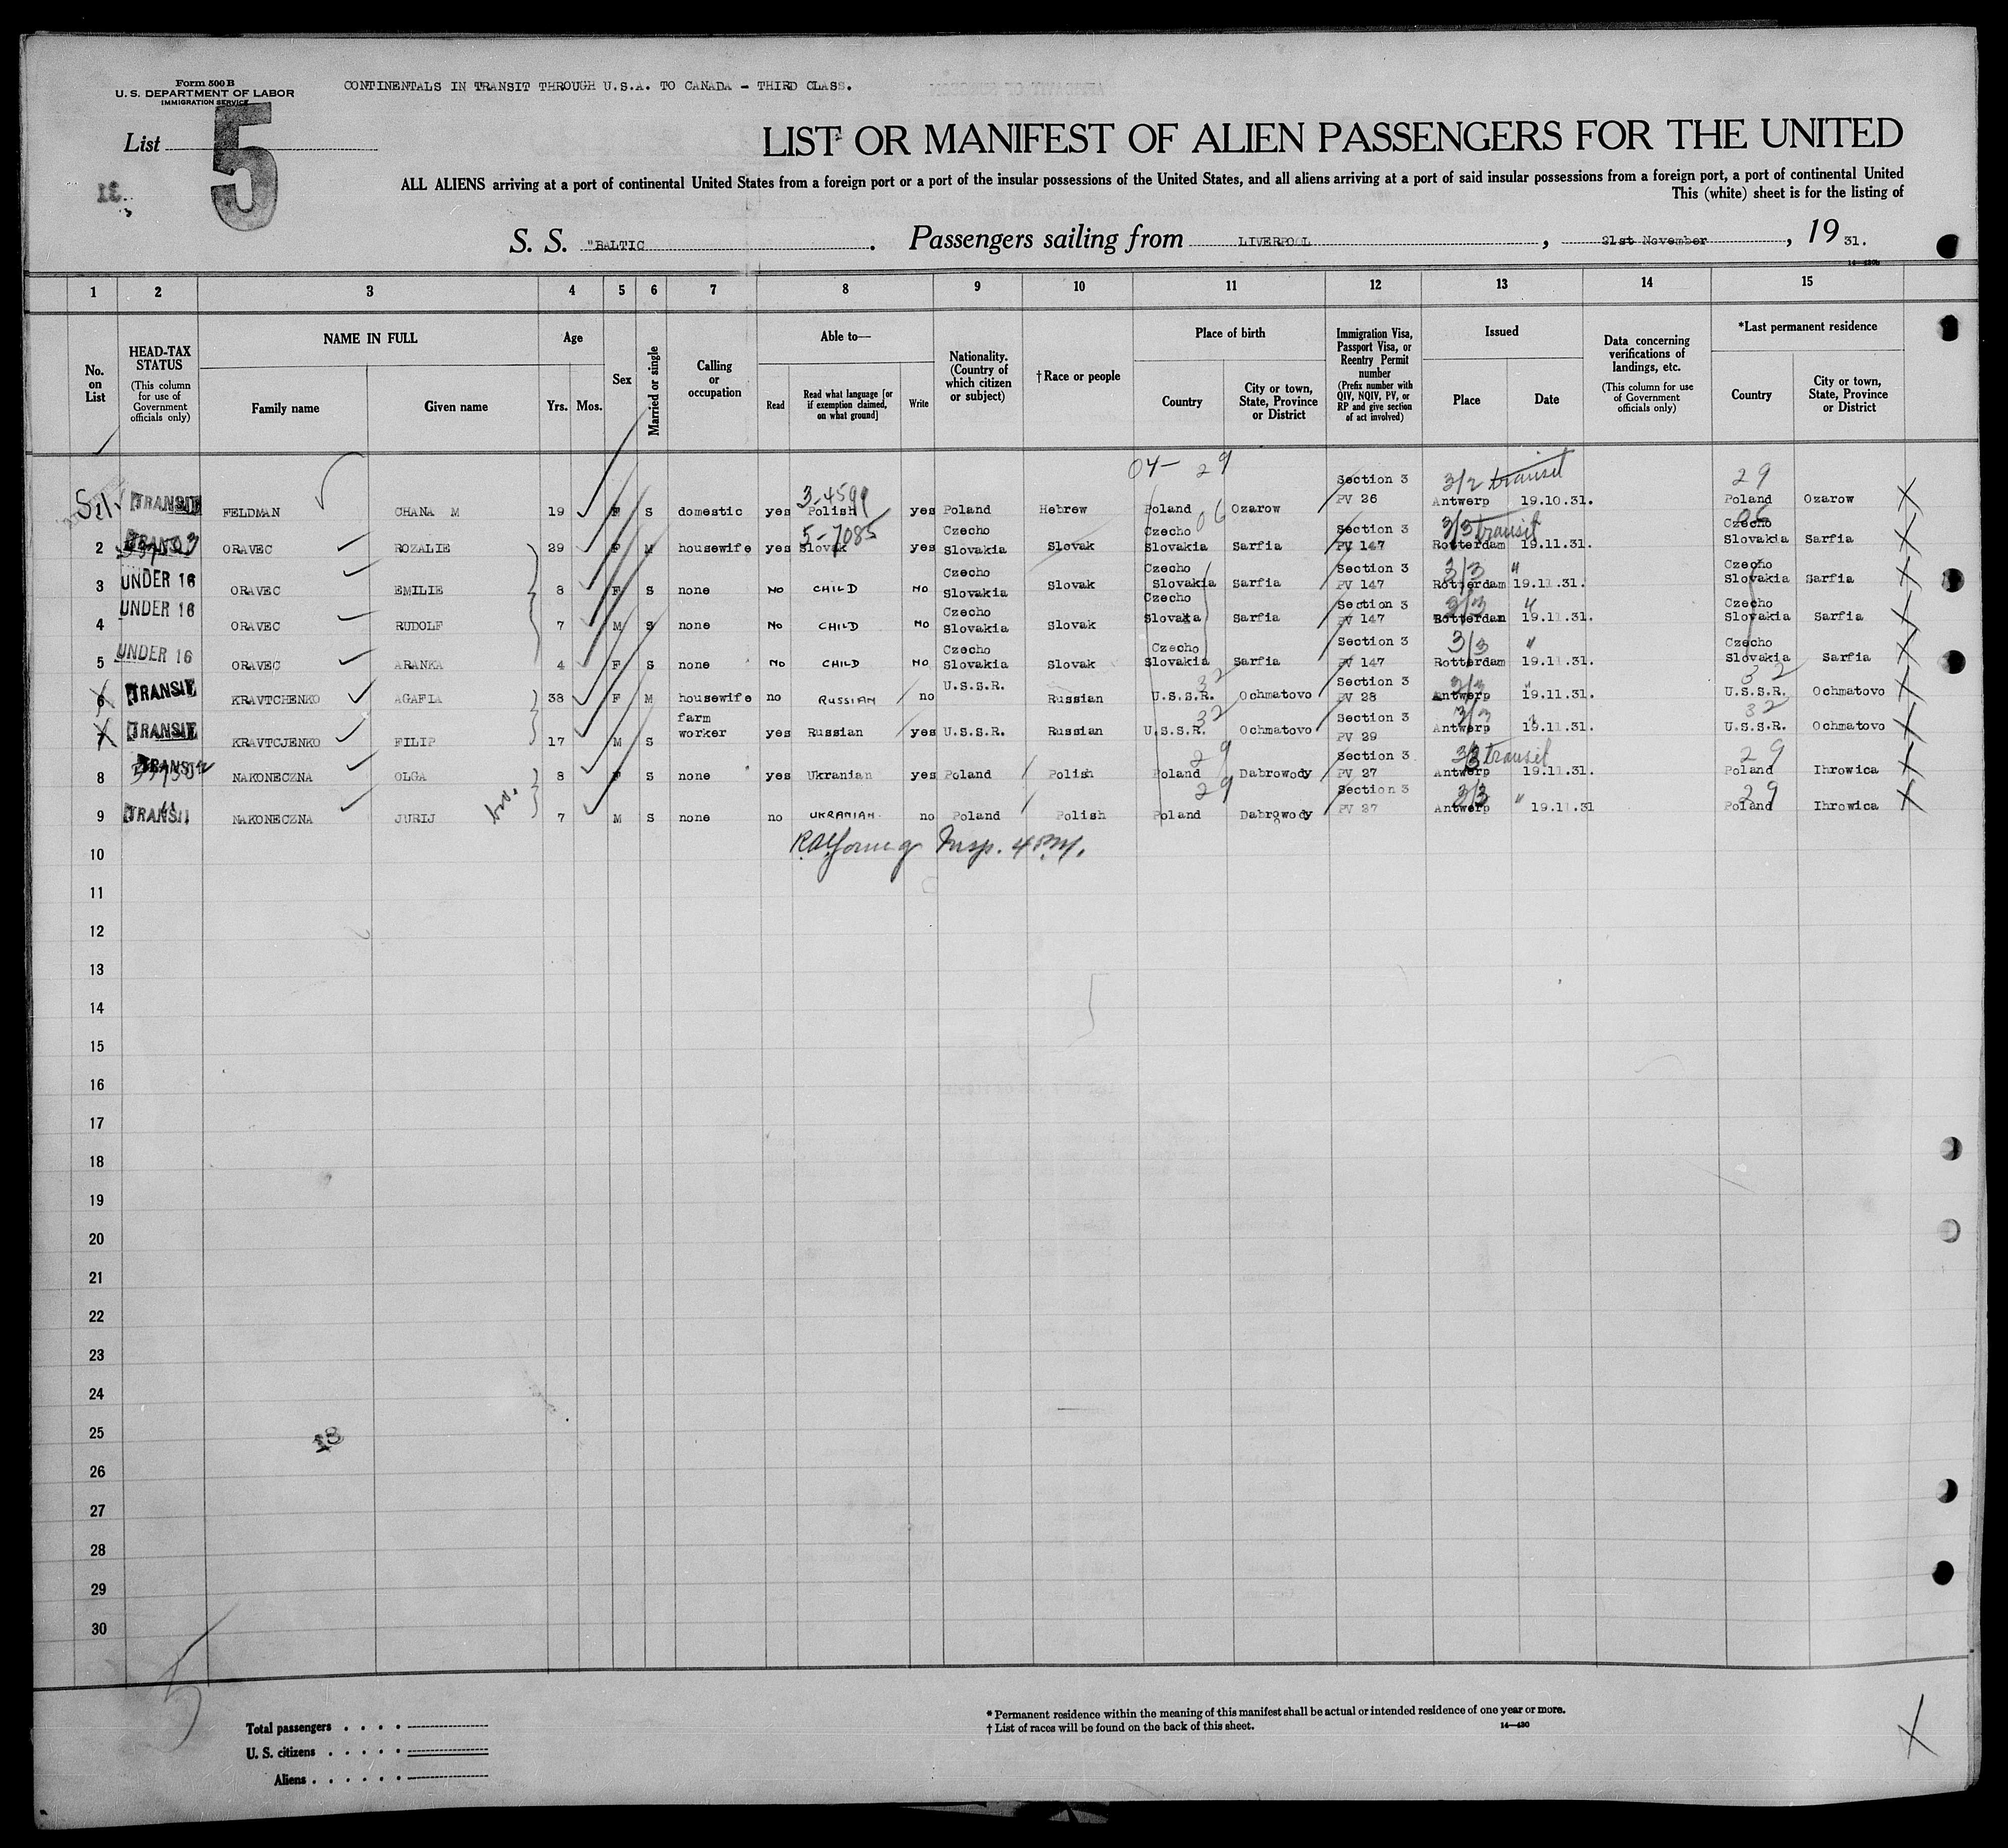 Form 500 B
U. S. DEPARTMENT OF LABOR
IMMIGRATION SERVICE
CONTINENTALS IN TRANSIT THROUGH U.S.A. TO CANADA - THIRD CLASS.
List 5
LIST OR MANIFEST OF ALIEN PASSENGERS FOR THE UNITED
ALL ALIENS arriving at a port of continental United States from a foreign port or a port of the insular possessions of the United States, and all aliens arriving at a port of said insular possessions from a foreign port, a port of continental United
This (white) sheet is for the listing of
S. S. "BALTIC . Passengers sailing from LIVERPOOL , 21st November , 19 31.
1 2 3 4 5 6 7 8 9 10 11 12 13 14 15
No. on List
HEAD-TAX STATUS (This column for use of Government officials only)
NAME IN FULL
Family name Given name
Age
Yrs. Mos.
Sex
Married or single
Calling or occupation
Able to—
Read Read what language [or if exemption claimed, on what ground] Write
Nationality. (Country of which citizen or subject)
†Race or people
Place of birth
Country City or town, State, Province or District
Immigration Visa, Passport Visa, or Reentry Permit number (Prefix number with QIV, NQIV, PV, or RP and give section of act involved)
Issued
Place Date
Data concerning verifications of landings, etc. (This column for use of Government officials only)
*Last permanent residence
Country City or town, State, Province or District
04- 29
3-4599 3/2 transit 29
TRANSIT FELDMAN CHANA M 19 F S domestic yes Polish yes Poland Hebrew Poland Ozarow Section 3 PV 26 Antwerp 19.10.31. Poland Ozarow
5-7085 06 3/3 transit 06
2 TRANSIT ORAVEC ROZALIE 29 F M housewife yes Slovak yes Czecho Slovakia Slovak Czecho Slovakia Sarfia Section 3 PV 147 Rotterdam 19.11.31. Czecho Slovakia Sarfia
3 UNDER 16 ORAVEC EMILIE 8 F S none NO CHILD NO Czecho Slovakia Slovak Czecho Slovakia Sarfia Section 3 PV 147 3/3 " Rotterdam 19.11.31. Czecho Slovakia Sarfia
4 UNDER 16 ORAVEC RUDOLF 7 M S none NO CHILD NO Czecho Slovakia Slovak Czecho Slovakia Sarfia Section 3 PV 147 3/3 " Rotterdam 19.11.31. Czecho Slovakia Sarfia
5 UNDER 16 ORAVEC ARANKA 4 F S none NO CHILD NO Czecho Slovakia Slovak Czecho Slovakia Sarfia Section 3 PV 147 3/3 " Rotterdam 19.11.31. Czecho Slovakia Sarfia
6 TRANSIT KRAVTCHENKO AGAFIA 38 F M housewife no RUSSIAN no U.S.S.R. Russian 32 U.S.S.R. Ochmatovo Section 3 PV 28 3/3 " Antwerp 19.11.31. 32 U.S.S.R. Ochmatovo
7 TRANSIT KRAVTCJENKO FILIP 17 M S farm worker yes Russian yes U.S.S.R. Russian 32 U.S.S.R. Ochmatovo Section 3 PV 29 3/3 " Antwerp 19.11.31. 32 U.S.S.R. Ochmatovo
8 TRANSIT NAKONECZNA OLGA 8 F S none yes Ukranian yes Poland Polish 29 Poland Dabrowody Section 3 PV 27 3/3 transit Antwerp 19.11.31. 29 Poland Ihrowica
9 TRANSIT NAKONECZNA JURIJ 7 M S none no UKRANIAN no Poland Polish 29 Poland Dabrowody Section 3 PV 27 3/3 " Antwerp 19.11.31 29 Poland Ihrowica
10 Insp.
11
12
13
14
15
16
17
18
19
20
21
22
23
24
25
26
27
28
29
30
5
Total passengers
U. S. citizens
Aliens
* Permanent residence within the meaning of this manifest shall be actual or intended residence of one year or more.
† List of races will be found on the back of this sheet. 14—430